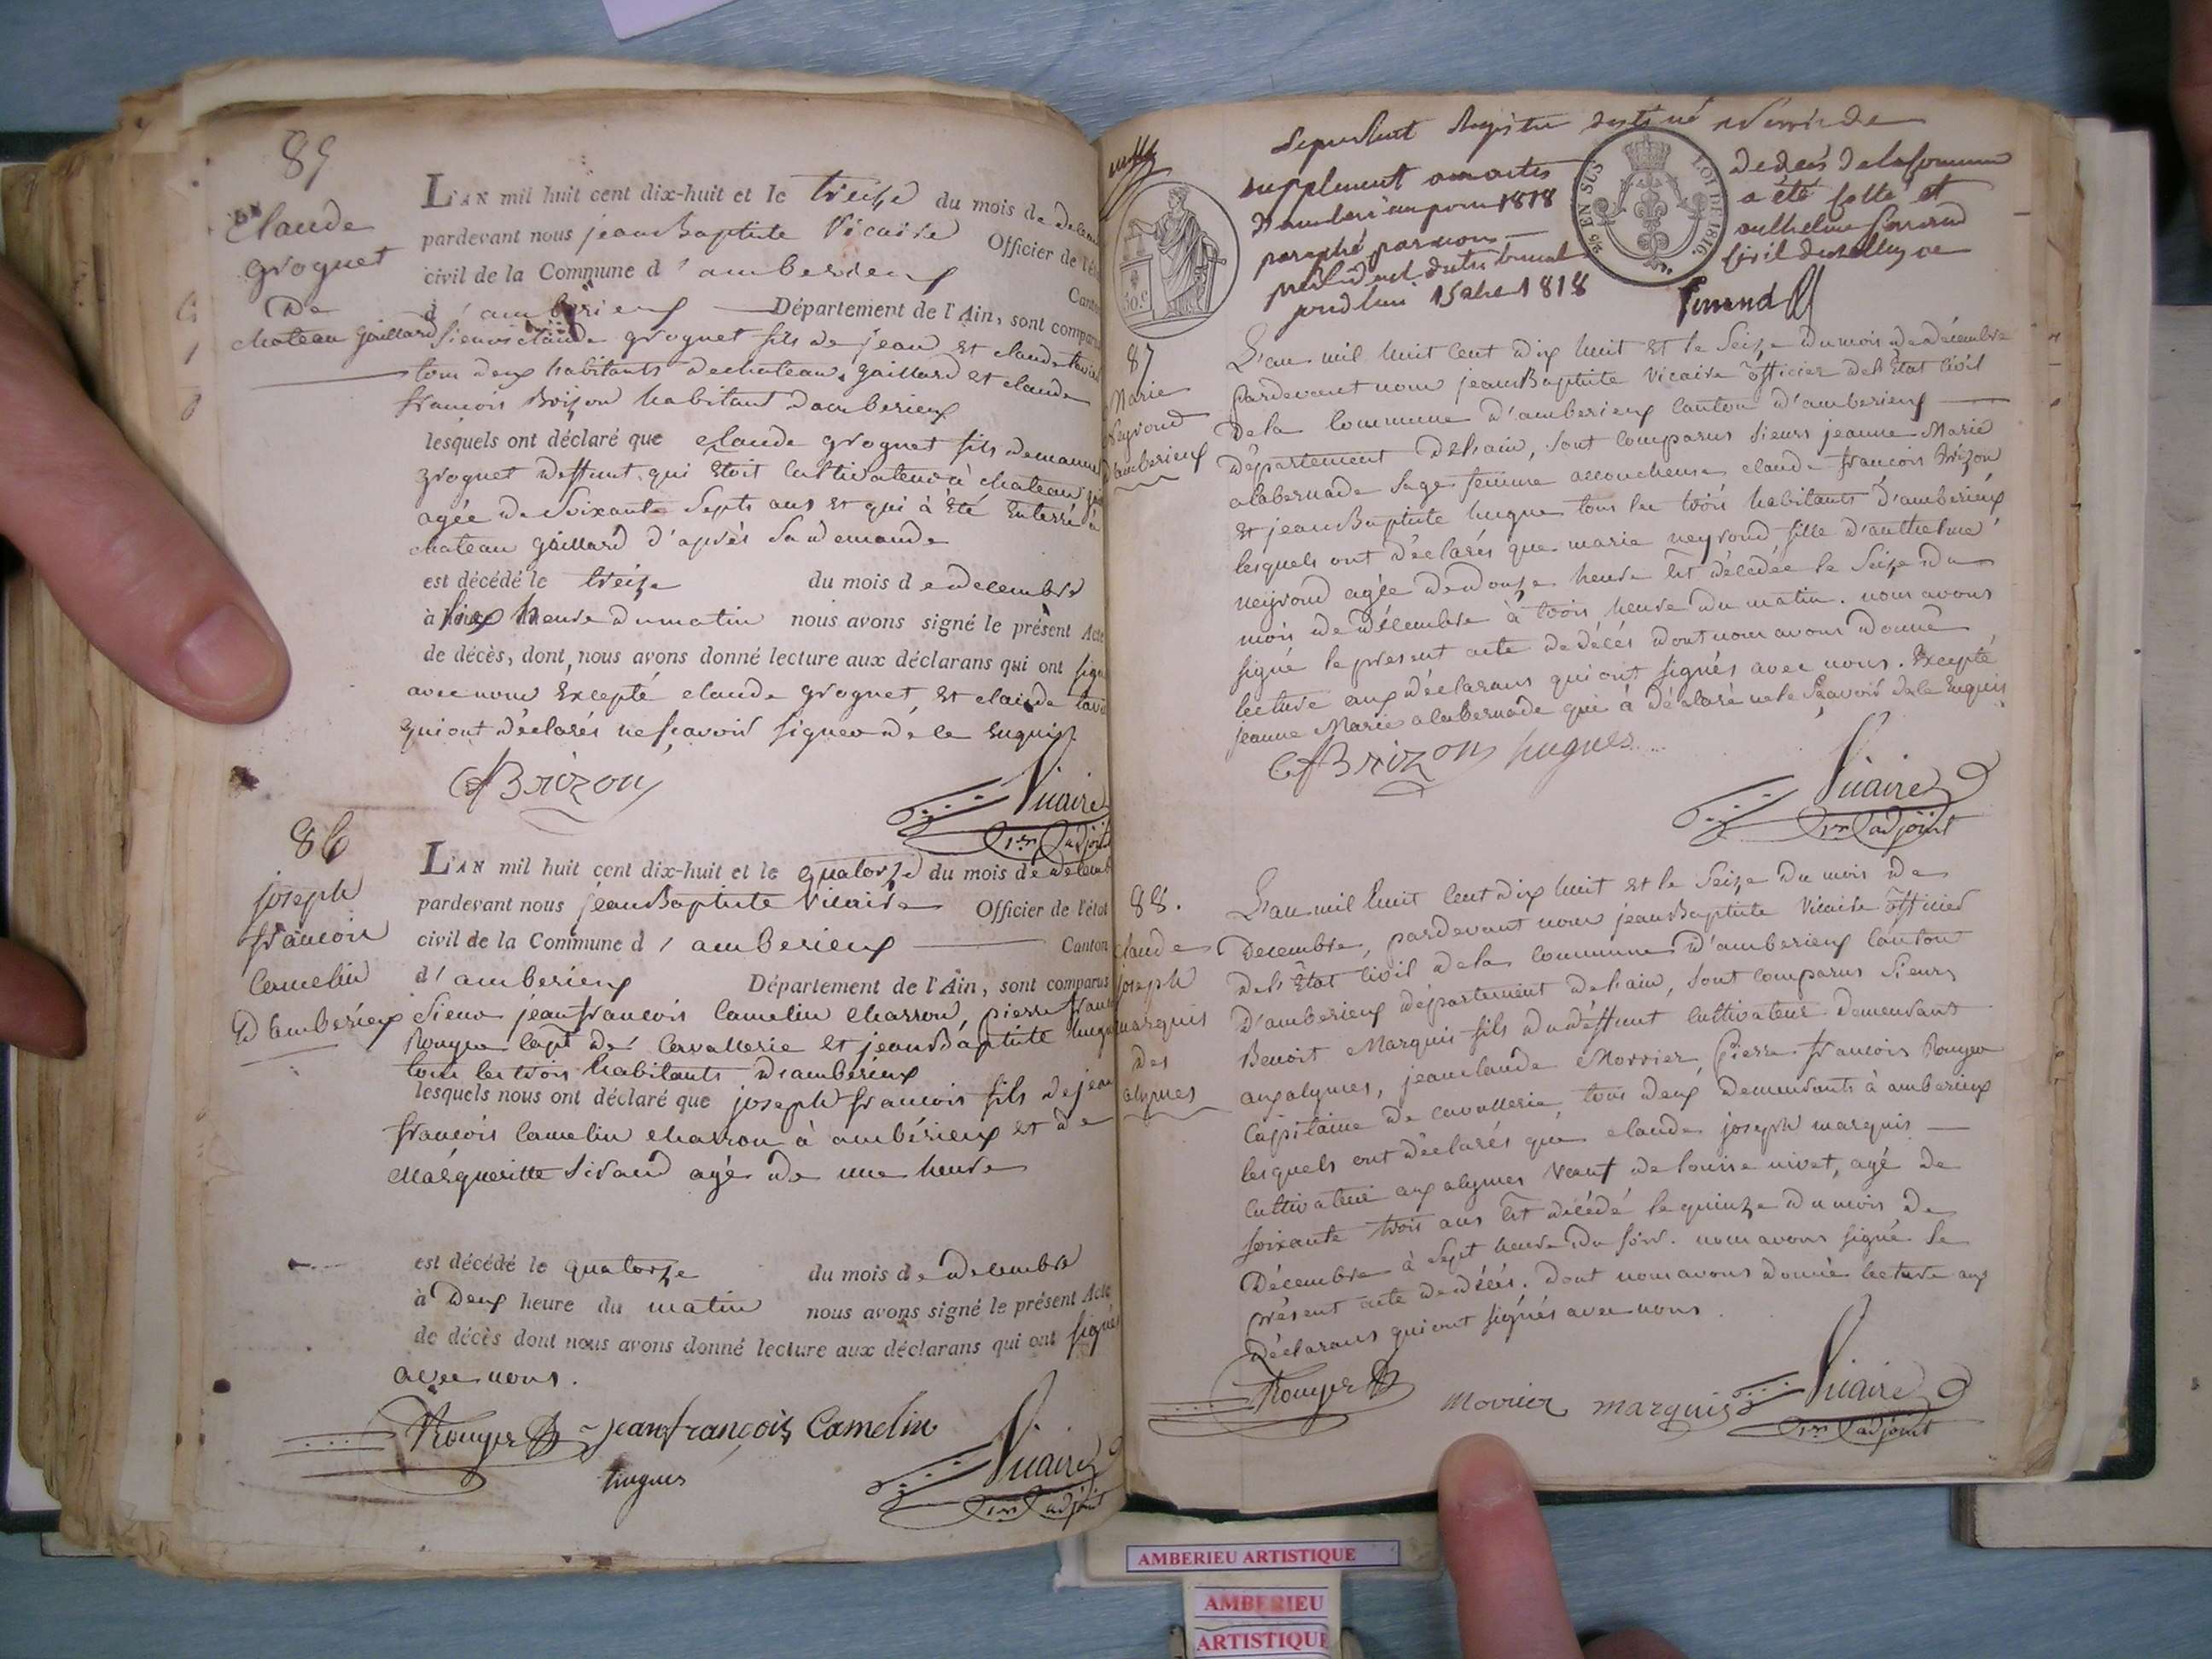 85
Claude
grognet
De
chateau gaillard
L'AN mil huit cent dix-huit et le treize du mois de
pardevant nous jean Baptiste Vicaire Officier de l'
civil de la Commune d'amberieux
d'amberieux Département de l'Ain, sont
Sieurs claude grognet fils de jean et claude
tous deux habitants de chateau gaillard et claude
francois Brizon habitant d'amberieux
lesquels ont déclaré que claude grognet fils
grognet deffunt qui etoit cultivateur à chateau
agée de Soixante Septs ans et qui à été Enterré à
chateau gaillard d'après Sa demande
est décédé le treize du mois de decembre
à heure du matin nous avons signé le présent Acte
de décès, dont nous avons donné lecture aux déclarans qui ont
avec nous Excepté claude grognet, et claude
qui ont déclarés ne sçavoir signer de ce Enquis
Brizon
Vicaire
1er adjoint
86
joseph
francois
Camelin
D'amberieux
L'AN mil huit cent dix-huit et le quatorze du mois de
pardevant nous jean Baptiste Vicaire Officier de l'état
civil de la Commune d'amberieux Canton
d'amberieux Département de l'Ain, sont comparus
Sieurs jean francois Camelin charron, pierre
Rouyer Capt de Cavallerie et jean Baptiste
tous les trois habitants d'amberieux
lesquels nous ont déclaré que joseph francois fils de jean
francois Camelin charron à ambérieux et de
Margueritte Sirand agé de une heure
est décédé le quatorze du mois de decembre
à Deux heure du matin nous avons signé le présent Acte
de décès dont nous avons donné lecture aux déclarans qui ont signés
avec nous.
Rouyer jean françois Camelin
hugues
Vicaire
1er adjoint
Le présent Registre destiné
supplement aux actes
d'amberieux pour 1818
paraphé par nous
president du tribunal
15 1818
50 c
EN SUS
LOI DE 1816
de décès de la commune
a été cotté et
anthelme ferrand
civil de
ferrand
87
Marie
Neyrond
d'amberieux
L'an mil huit cent dix huit et le Seize du mois de décembre
pardevant nous jean Baptiste Vicaire officier de l'Etat Civil
de la Commune d'amberieux Canton d'amberieux
département de l'ain, sont comparus Sieurs jeanne Marie
alabernade Sage femme accoucheuse claude francois Brizon
et jean Baptiste hugue tous les trois habitants d'ambérieux
lesquels ont déclarés que marie neyrond fille d'anthelme
neyrond agée de douze heure Est décédée le Seize du
mois de décembre à trois heure du matin. nous avons
signé le present acte de décés dont nous avons donné
lecture aux déclarans qui ont signés avec nous. Excepté
jeanne Marie alabernade qui à déclaré ne le Sçavoir de le Enquis
Brizon hugues
Vicaire
1er adjoint
88.
Claude
joseph
marquis
Des
alymes
L'an mil huit cent dix huit et le Seize du mois de
Decembre, pardevant nous jean Baptiste Vicaire officier
de l'Etat Civil de la Commune d'amberieux Canton
d'amberieux département de l'ain, sont comparus Sieurs
Benoit Marquis fils du deffunt cultivateur demeurant
aux alymes, jean claude Morrier, Pierre francois Rouyer
Capitaine de cavallerie, tous deux demeurants à amberieux
lesquels ont déclarés que claude joseph marquis
Cultivateur aux alymes Veuf de louise nivet, agé de
soixante trois ans Est décédé le quinze du mois de
Décembre à Sept heure du soir. nous avons signé le
présent acte de décés. dont nous avons donné lecture aux
déclarans qui ont signés avec nous.
Rouyer Morrier marquis Vicaire
1er adjoint
AMBERIEU ARTISTIQUE
AMBERIEU
ARTISTIQUE